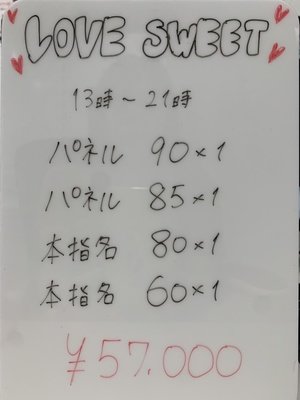 LOVE SWEET
13時～21時
パネル 90×1
パネル 85×1
本指名 80×1
本指名 60×1
¥57.000